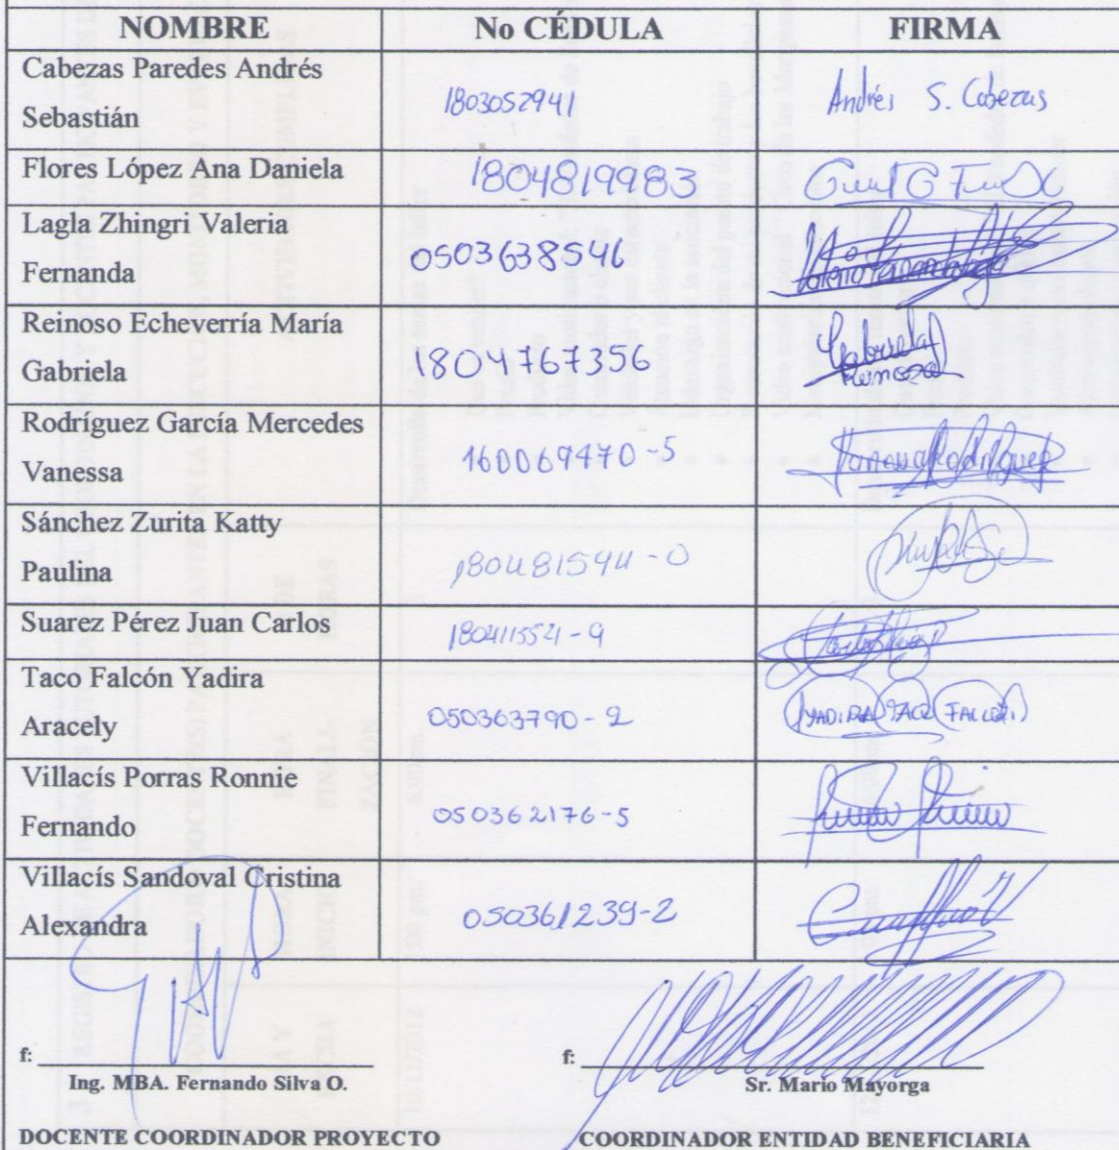 NOMBRE No CÉDULA FIRMA
Cabezas Paredes Andrés
Sebastián
1803052941 Andrés S. Cabezas
Flores López Ana Daniela 1804819983
Lagla Zhingri Valeria
Fernanda
0503638546
Reinoso Echeverría María
Gabriela
1804767356 Gabriela
Reinoso
Rodríguez García Mercedes
Vanessa
160069470-5 Vanessa Rodríguez
Sánchez Zurita Katty
Paulina
180481594-0
Suarez Pérez Juan Carlos 180411552-9
Taco Falcón Yadira
Aracely
050363790-2 YADIRA TACO FALCON
Villacís Porras Ronnie
Fernando
050362176-5
Villacís Sandoval Cristina
Alexandra
050361239-2
f: f:
Ing. MBA. Fernando Silva O. Sr. Mario Mayorga
DOCENTE COORDINADOR PROYECTO COORDINADOR ENTIDAD BENEFICIARIA